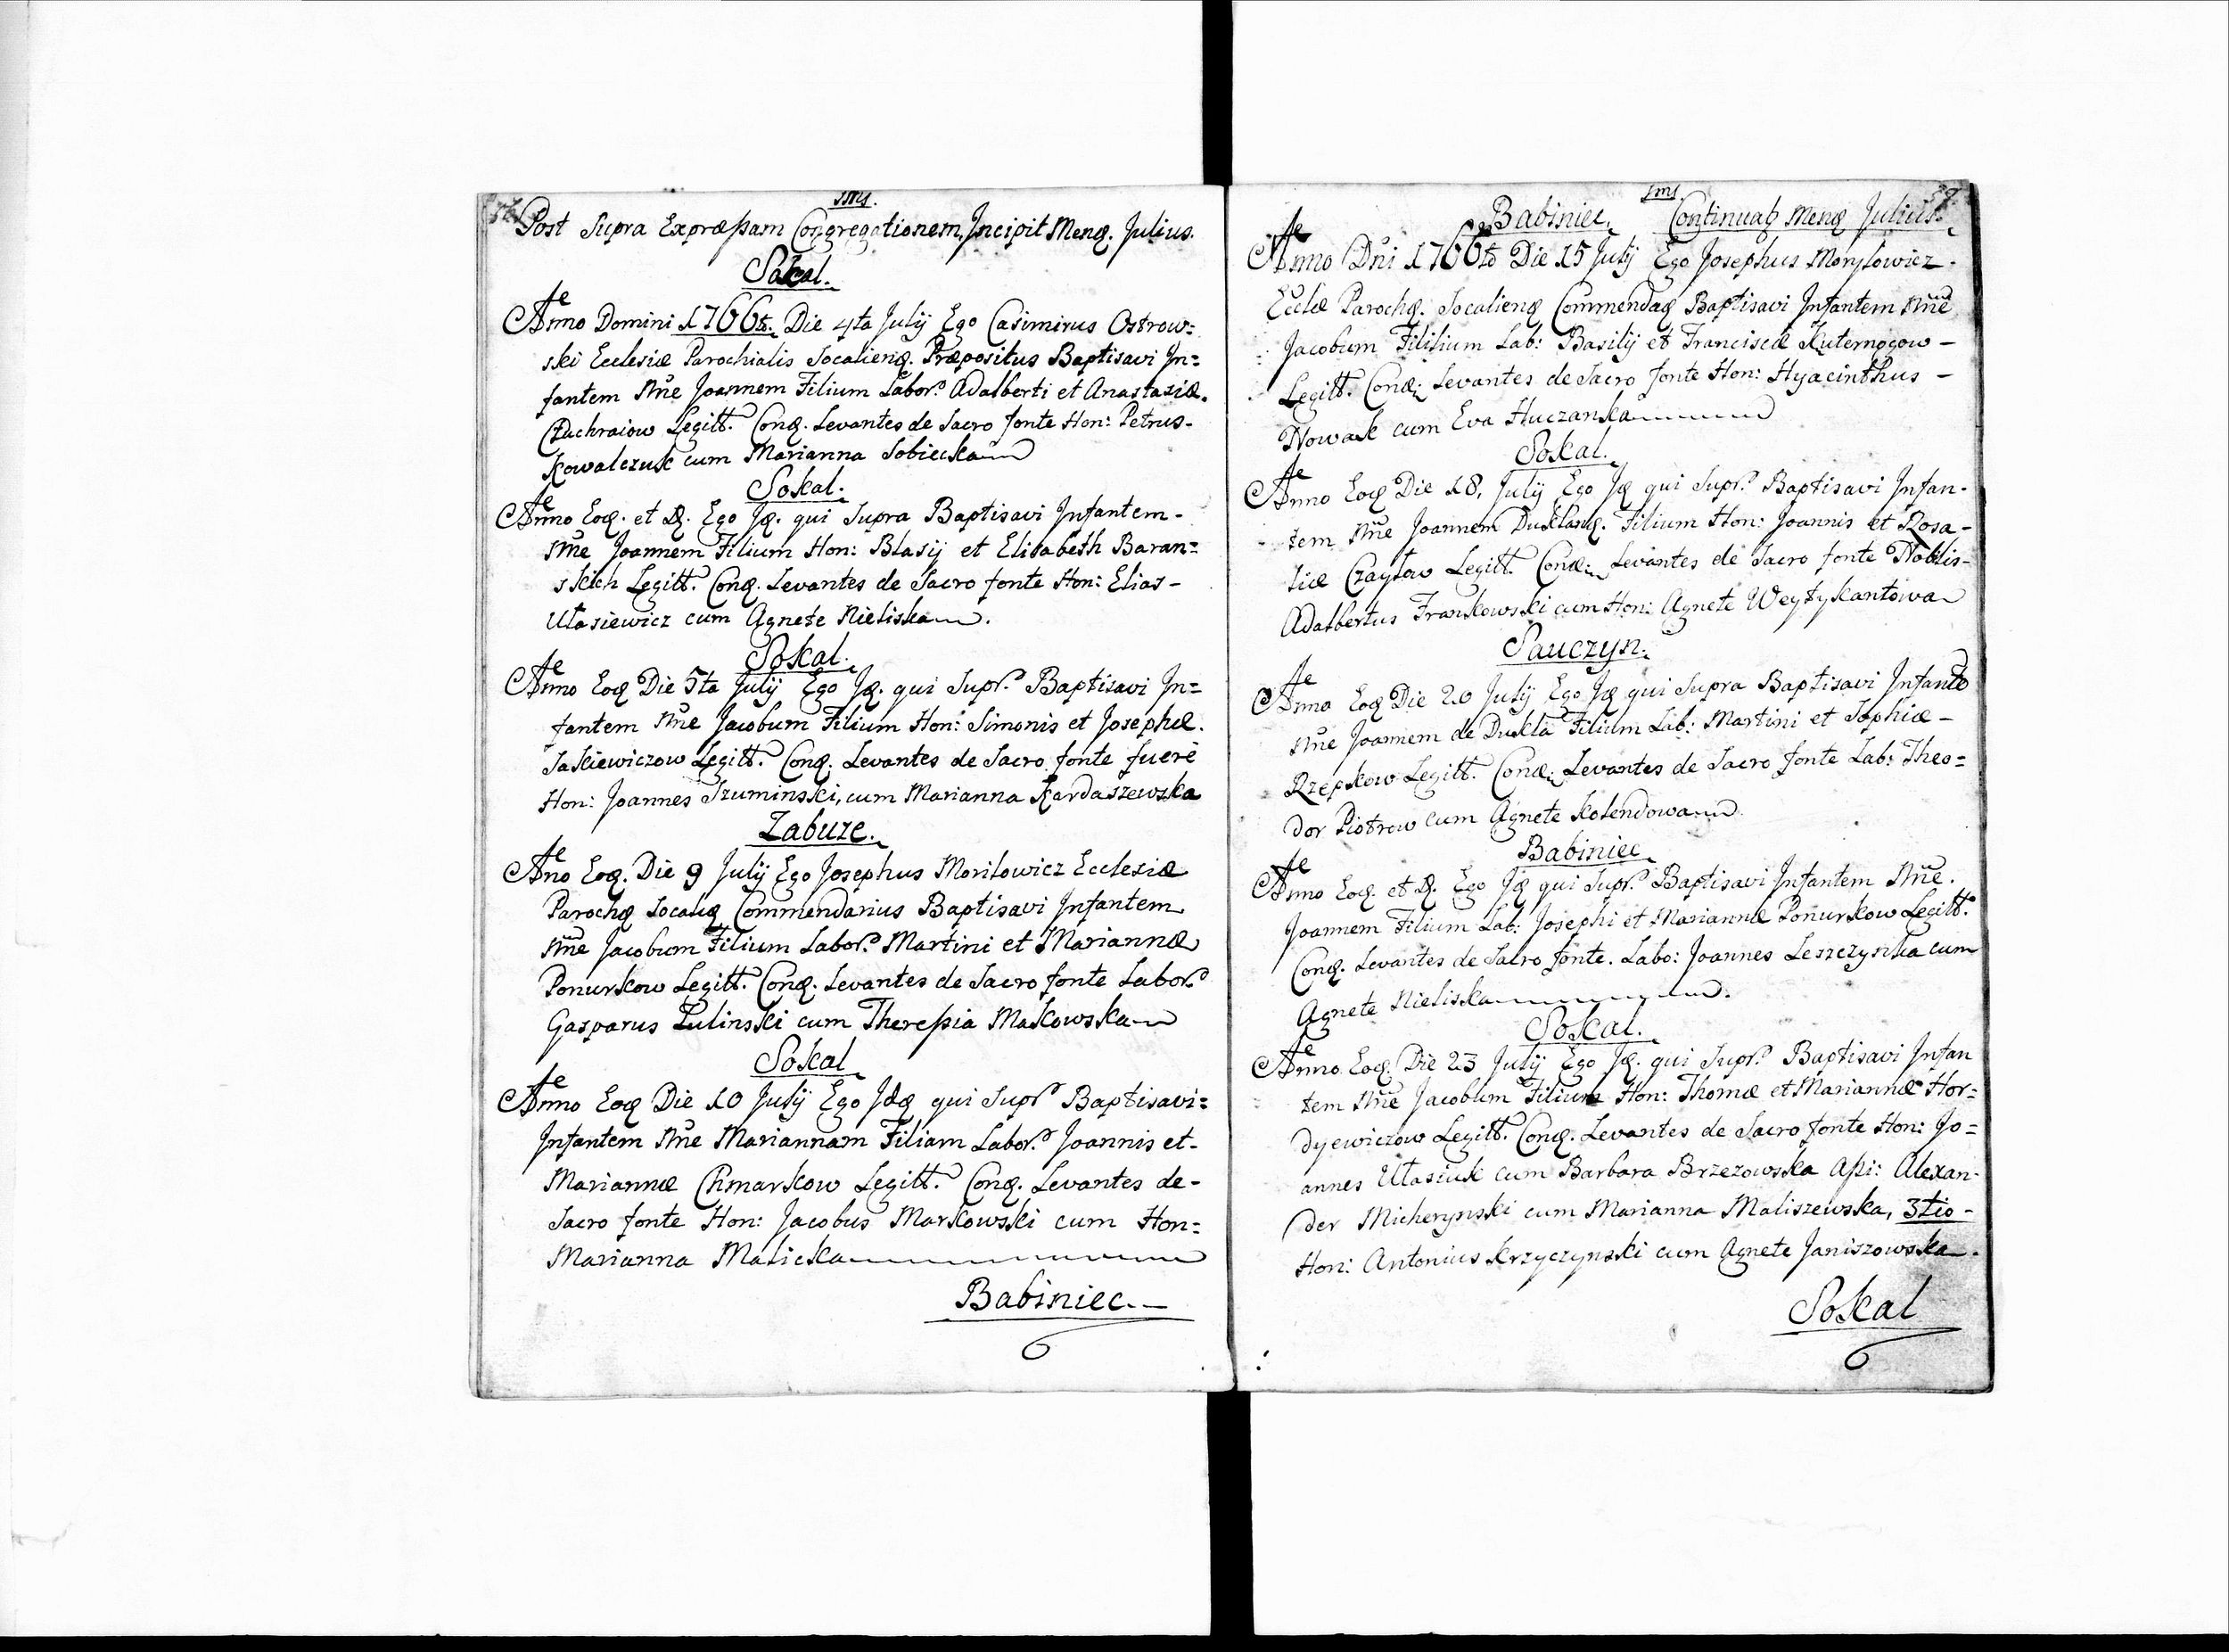 Post Supra Expræssam Congregationem, Incipit Menq. Julius.
Sokal.
Anno Domini 1766to. Die 4ta Julij Ego Casimirus Ostrow=
ski Ecclesiæ Parochialis Socalienq. Præpositus Baptisavi In=
fantem Nne Joannem Filium Labor. Adalberti et Anastasiæ.
Legitt. Conq. Levantes de Sacro fonte Hon: Petrus-
Kowalczuk cum Marianna Sobiecka
Sokal.
Anno Eoq. et D. Ego Jq. qui Supra Baptisavi Infantem-
Nne Joannem Filium Hon: Blasij et Elisabeth Baran=
skich Legitt. Conq. Levantes de Sacro fonte Hon: Elias-
Utasiewicz cum Agnete Nieliska.
Sokal.
Anno Eoq Die 5ta Julij Ego Jq. qui Supr. Baptisavi In=
fantem Nne Jacobum Filium Hon: Simonis et Josephæ.
Saskiewiczow Legitt. Conq. Levantes de Sacro fonte fuerē
Hon: Joannes Szuminski, cum Marianna Kardaszewska
Zabuze.
Ano Eoq. Die 9 Julij Ego Josephus Morilowicz Ecclesiæ
Parochq Socaliq Commendarius Baptisavi Infantem
Nne Jacobum Filium Labor. Martini et Mariannæ
Ponurkow Legitt. Conq. Levantes de Sacro fonte Labor.
Gasparus Lulinski cum Theressia Makowska
Sokal
Anno Eoq Die 10 Julij Ego Jdq qui Supr Baptisavi=
Infantem Nne Mariannam Filiam Labor. Joannis et-
Mariannæ Chmarkow Legitt. Conq. Levantes de-
Sacro fonte Hon: Jacobus Markowski cum Hon=
Marianna Malicka
Babiniec.
Babiniec. Continuatq Menq Julius.
Anno Dni 1766to Die 15 Julij Ego Josephus Morylowicz.
Ecclæ Parochq. Socalienq Commendaq Baptisavi Infantem Nne
Jacobum Fililium Lab: Basilij et Franciscæ Kuternogow-
Legitt. Conq. Levantes de Sacro fonte Hon: Hyacinthus-
Nowak cum Eva Huczanska
Sokal.
Anno Eoq Die 18, Julij Ego Jq qui Supr. Baptisavi Infan-
tem Nne Joannem Duklanq. Filium Hon: Joannis et Rosa-
liæ Czaylow Legitt. Conq. Levantes de Sacro fonte Noblis-
Adalbertus Frankowski cum Hon: Agnete Weytykantowa
Sauczyn.
Anno Eoq Die 20 Julij Ego Jq qui Supra Baptisavi Infante
Nne Joannem de Dukla Filium Lab: Martini et Sophiæ-
Rzepkow Legitt. Conq. Levantes de Sacro fonte Lab: Theo=
dor Piotrow cum Agnete Kolendowa
Babiniec
Anno Eoq. et D. Ego Jq qui Supr. Baptisavi Infantem Nne.
Joannem Filium Lab: Josephi et Mariannæ Ponurkow Legitt.
Conq. Levantes de Sacro fonte. Labo: Joannes Leszczynka cum
Agnete Nieliska.
Sokal.
Anno Eoq. Die 23 Julij Ego Jq. qui Supr. Baptisavi Infan
tem Nne Jacobum Filium Hon: Thomæ et Mariannæ Hor=
dyewiczow Legitt. Conq. Levantes de Sacro fonte Hon: Jo=
annes Utasiuk cum Barbara Brzezowska Assi: Alexan-
der Micherynski cum Marianna Maliszewska, 3tio-
Hon: Antonius Krzyczynski cum Agnete Janiszowska.
Sokal